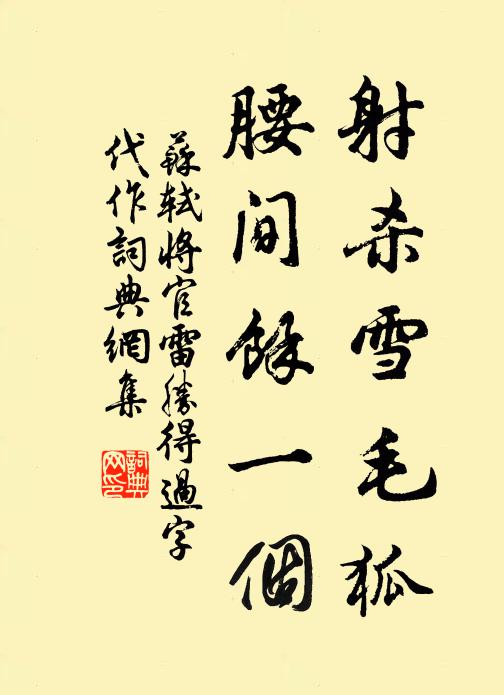 射杀雪毛狐
腰间馀一個
蘇軾將官雷勝得過字
代作詞典網集
詞典网印